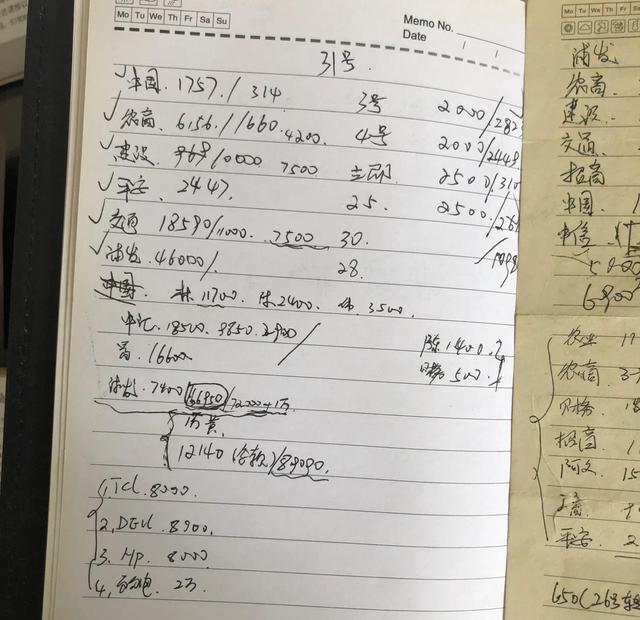 Mo Tu We Th Fr Sa Su
Memo No.
Date / /
31号.
√中国. 1757. / 314 3号 2000/282
√农商. 6156. / 1660. 4200. 4号 2000/2448
√建设 968/10000 7500 立即 2500/310
√平安. 2447. 25. 2500./26
√交通 18590/11000. 7500 30.
√浦发. 46000/. 28.
中国. 林. 11700. 陈2400. 林 3500.
中汇. 18500. 9850. 2900/
商. 16600. 陈1400.
财务500.
浦发. 7400 66950/72000+1万
12140(含款)/89090.
1, TCL. 8000.
2, DELL. 8900.
3. HP. 8000
4, 2万.
Mo Tu We Th Fr
浦发
农商.
建设.
交通.
招商
中国. 1
中信.
6900
农业 1
农商. 3
财务. 18
招商. 1
15
工商.
平安. 2
650(26号